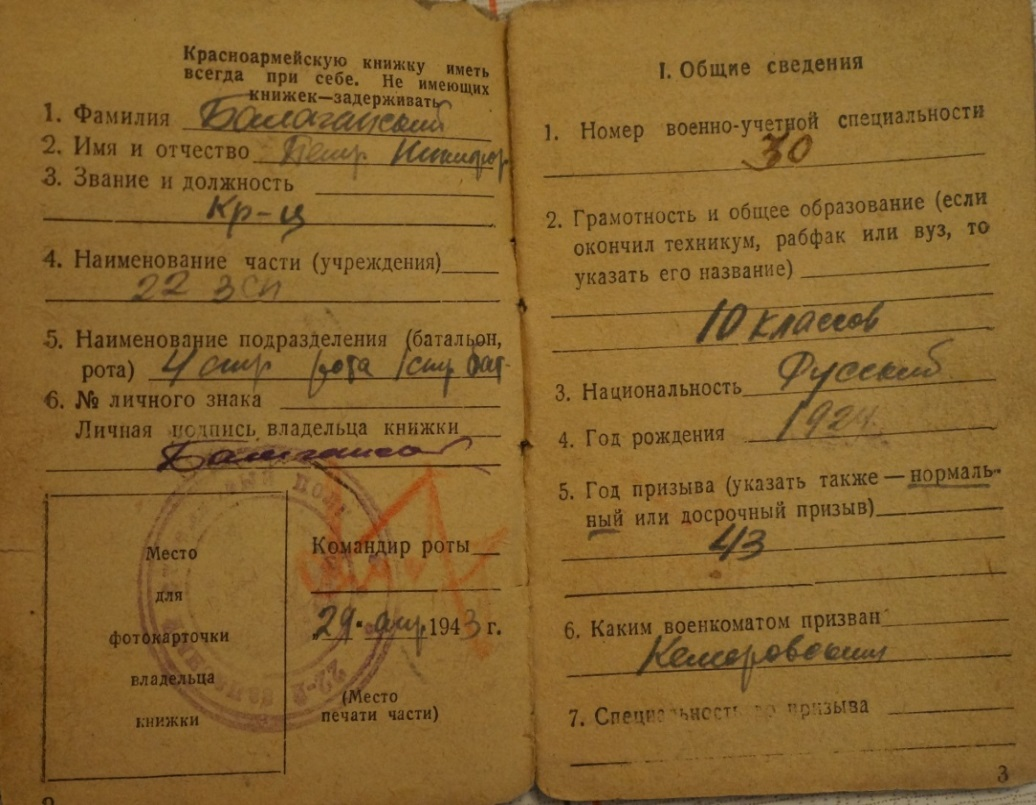 Красноармейскую книжку иметь
всегда при себе. Не имеющих
книжек—задерживать
1. Фамилия Балаганский
2. Имя и отчество Петр Никифор
3. Звание и должность
Кр-ц
4. Наименование части (учреждения)
22 ЗСП
5. Наименование подразделения (батальон,
рота) 4 стр рота 1 стр бат
6. № личного знака
Личная подпись владельца книжки
Место
для
фотокарточки
владельца
книжки
Командир роты
29. апр 1943 г.
(Место
печати части)
22-й
I. Общие сведения
1. Номер военно-учетной специальности
30
2. Грамотность и общее образование (если
окончил техникум, рабфак или вуз, то
указать его название)
10 классов
3. Национальность Русский
4. Год рождения 1924
5. Год призыва (указать также — нормаль-
ный или досрочный призыв)
43
6. Каким военкоматом призван
Кемеровским
7. Специальность до призыва
3